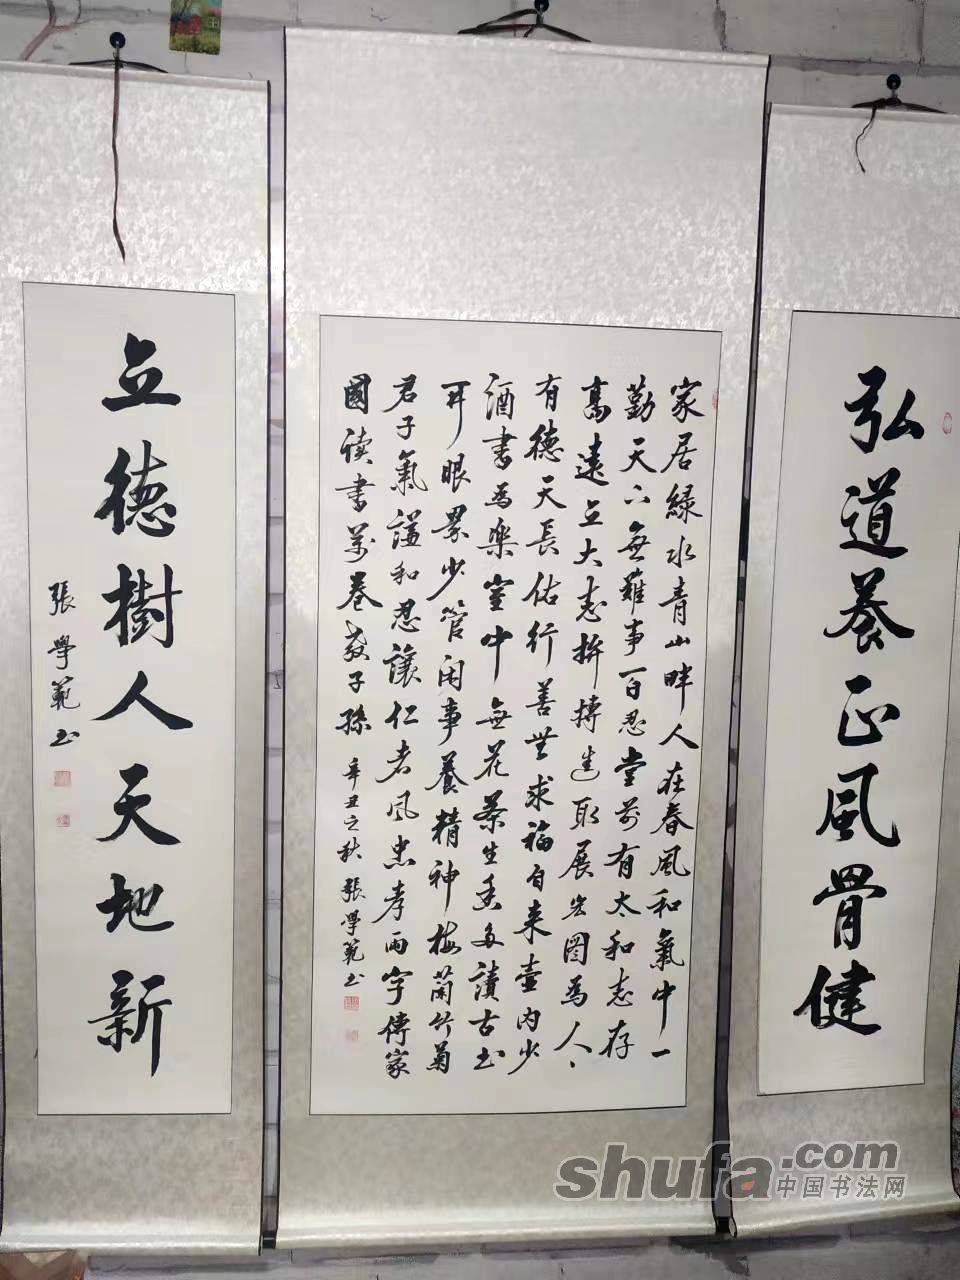 弘道養正風骨健
家居緑水青山畔人在春風和氣中一
勤天下無難事百忍堂前有太和志存
高遠立大志拚搏進取展宏圖為人、
有德天長佑行善無求福自来壺内少
酒書為樂室中無花茶生香多讀古书
开眼界少管闲事養精神梅蘭竹菊
君子氣謙和忍讓仁者風忠孝兩字傳家
國读書萬卷教子孫 辛丑之秋 張學範书
立德樹人天地新
張學範书
shufa.com
中国书法网